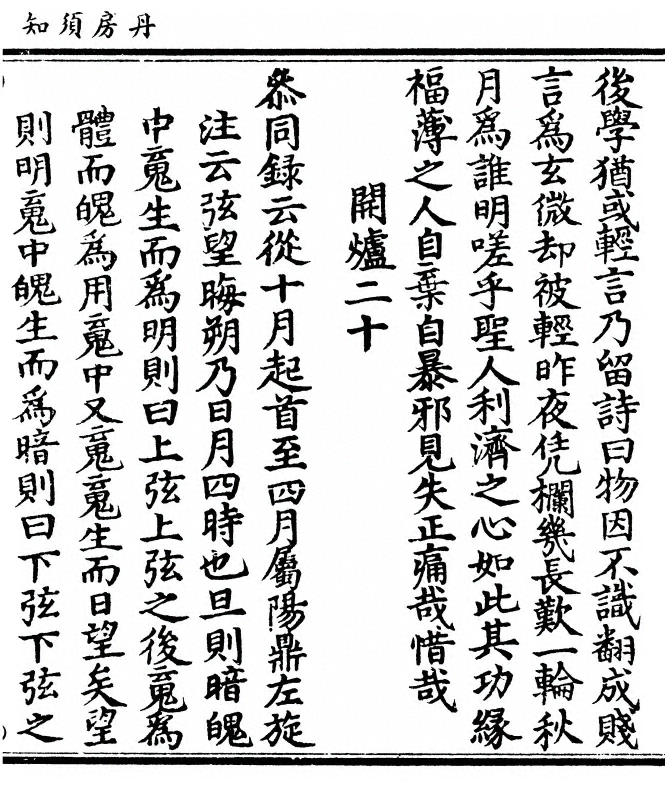 丹房須知
後學猶或輕言乃留詩曰物因不識翻成賤
言爲玄微却被輕昨夜凭欄幾長歎一輪秋
月爲誰明嗟乎聖人利濟之心如此其功緣
福薄之人自棄自暴邪見失正痛哉惜哉
開爐二十
叅同録云從十月起首至四月屬陽鼎左旋
注云弦望晦朔乃日月四時也旦則暗魄
中䰟生而爲明則曰上弦上弦之後䰟爲
體而魄爲用䰟中又䰟䰟生而日望矣望
則明䰟中魄生而爲暗則曰下弦下弦之